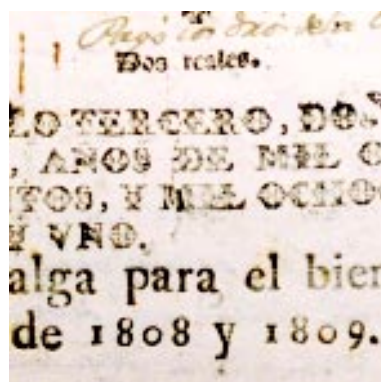 Dos reales.
LO TERCERO, DOS
, AÑOS DE MIL O
TOS, Y MIL OCHO
Y VNO.
alga para el bien
de 1808 y 1809.